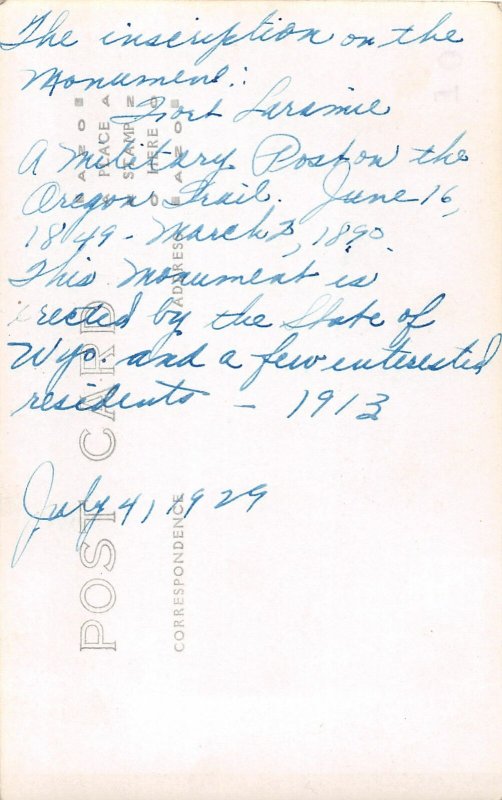 The inscription on the
Monument:
Fort Laramie
A Military Post on the
Oregon Trail. June 16,
1849 - March 2, 1890
This Monument is
erected by the State of
Wyo. and a few interested
residents - 1913
July 4, 1929
POST CARD
CORRESPONDENCE
ADDRESS
AZO
PLACE
STAMP
HERE
AZO